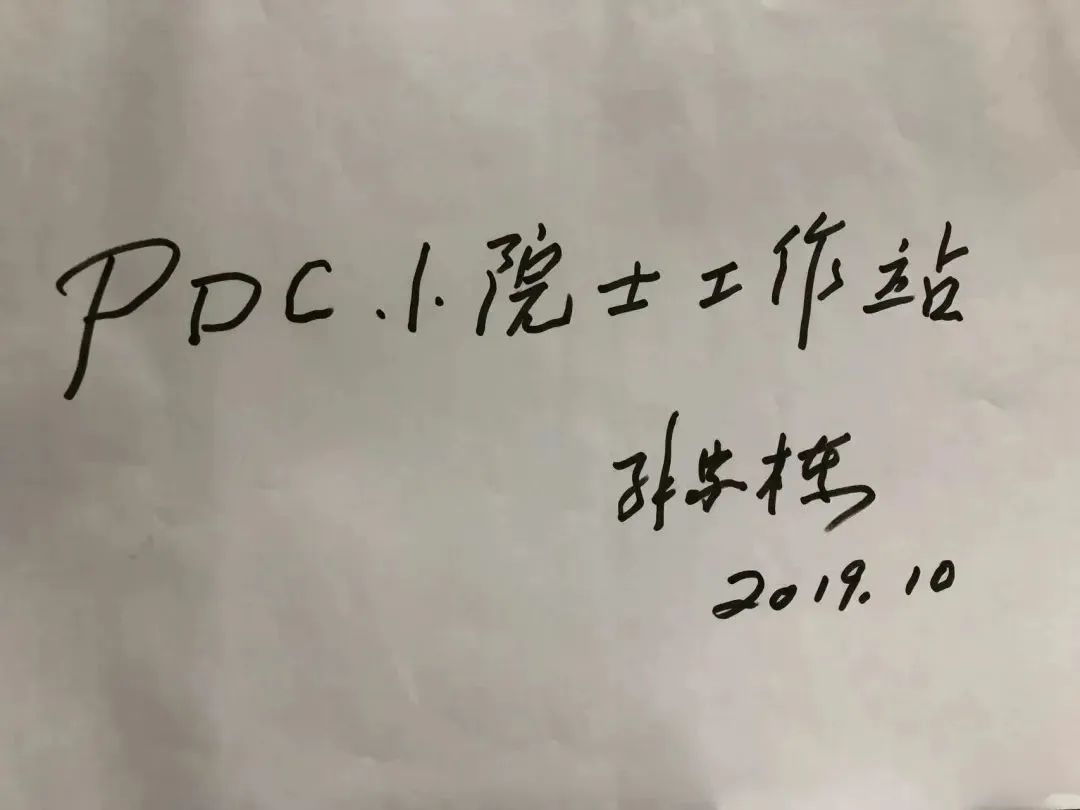 PDC小院士工作站
孙家栋
2019.10